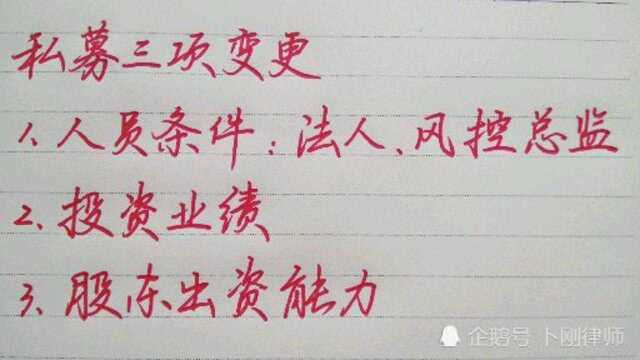 私募三项变更
1、人员条件：法人、风控总监
2、投资业绩
3、股东出资能力
企鹅号 卜刚律师